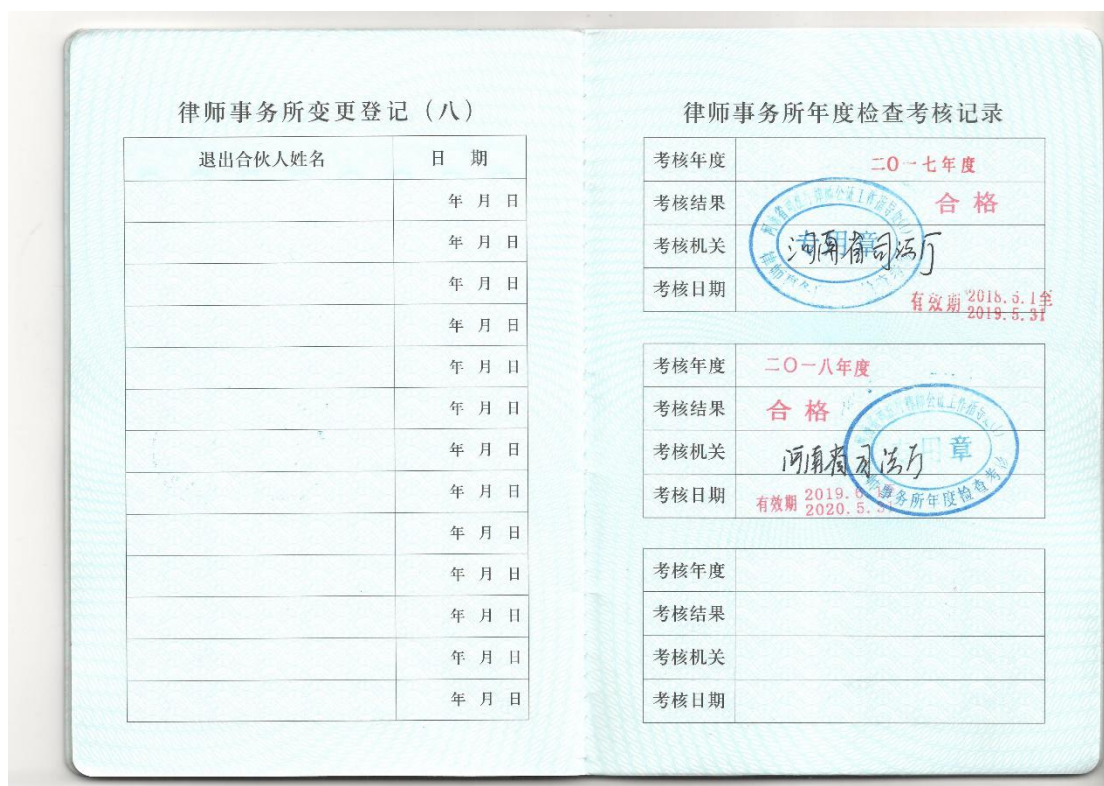 律师事务所变更登记（八）
退出合伙人姓名 日 期
年 月 日
年 月 日
年 月 日
年 月 日
年 月 日
年 月 日
年 月 日
年 月 日
年 月 日
年 月 日
年 月 日
年 月 日
年 月 日
律师事务所年度检查考核记录
考核年度 二〇一七年度
考核结果 合格
考核机关 河南省司法厅
专用章
考核日期 有效期 2018.6.1至
2019.5.31
考核年度 二〇一八年度
考核结果 合格
考核机关 河南省司法厅
章
考核日期 有效期 2019.
2020.5.31
事务所年度检查考
考核年度
考核结果
考核机关
考核日期